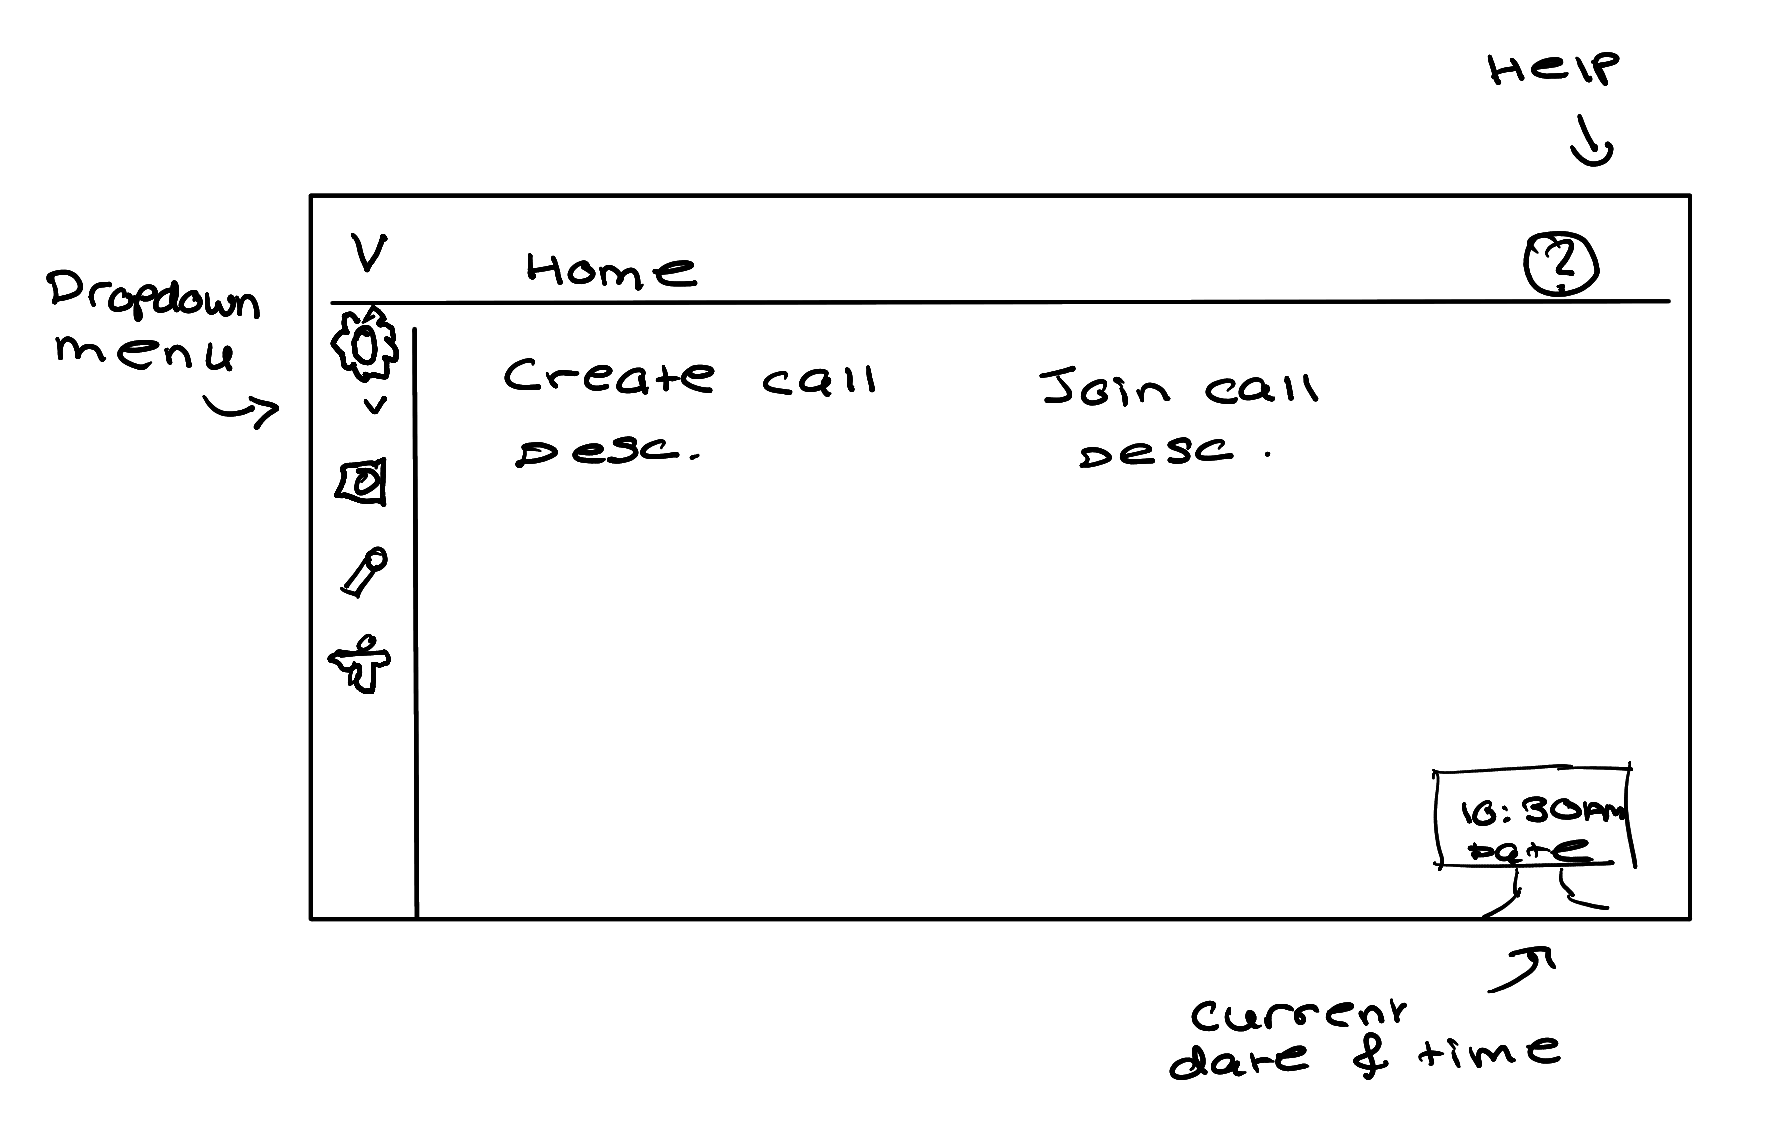 Help
V
Home
?
Dropdown
menu
Create call
Join call
Desc.
Desc.
10:30PM
Date
current
date & time